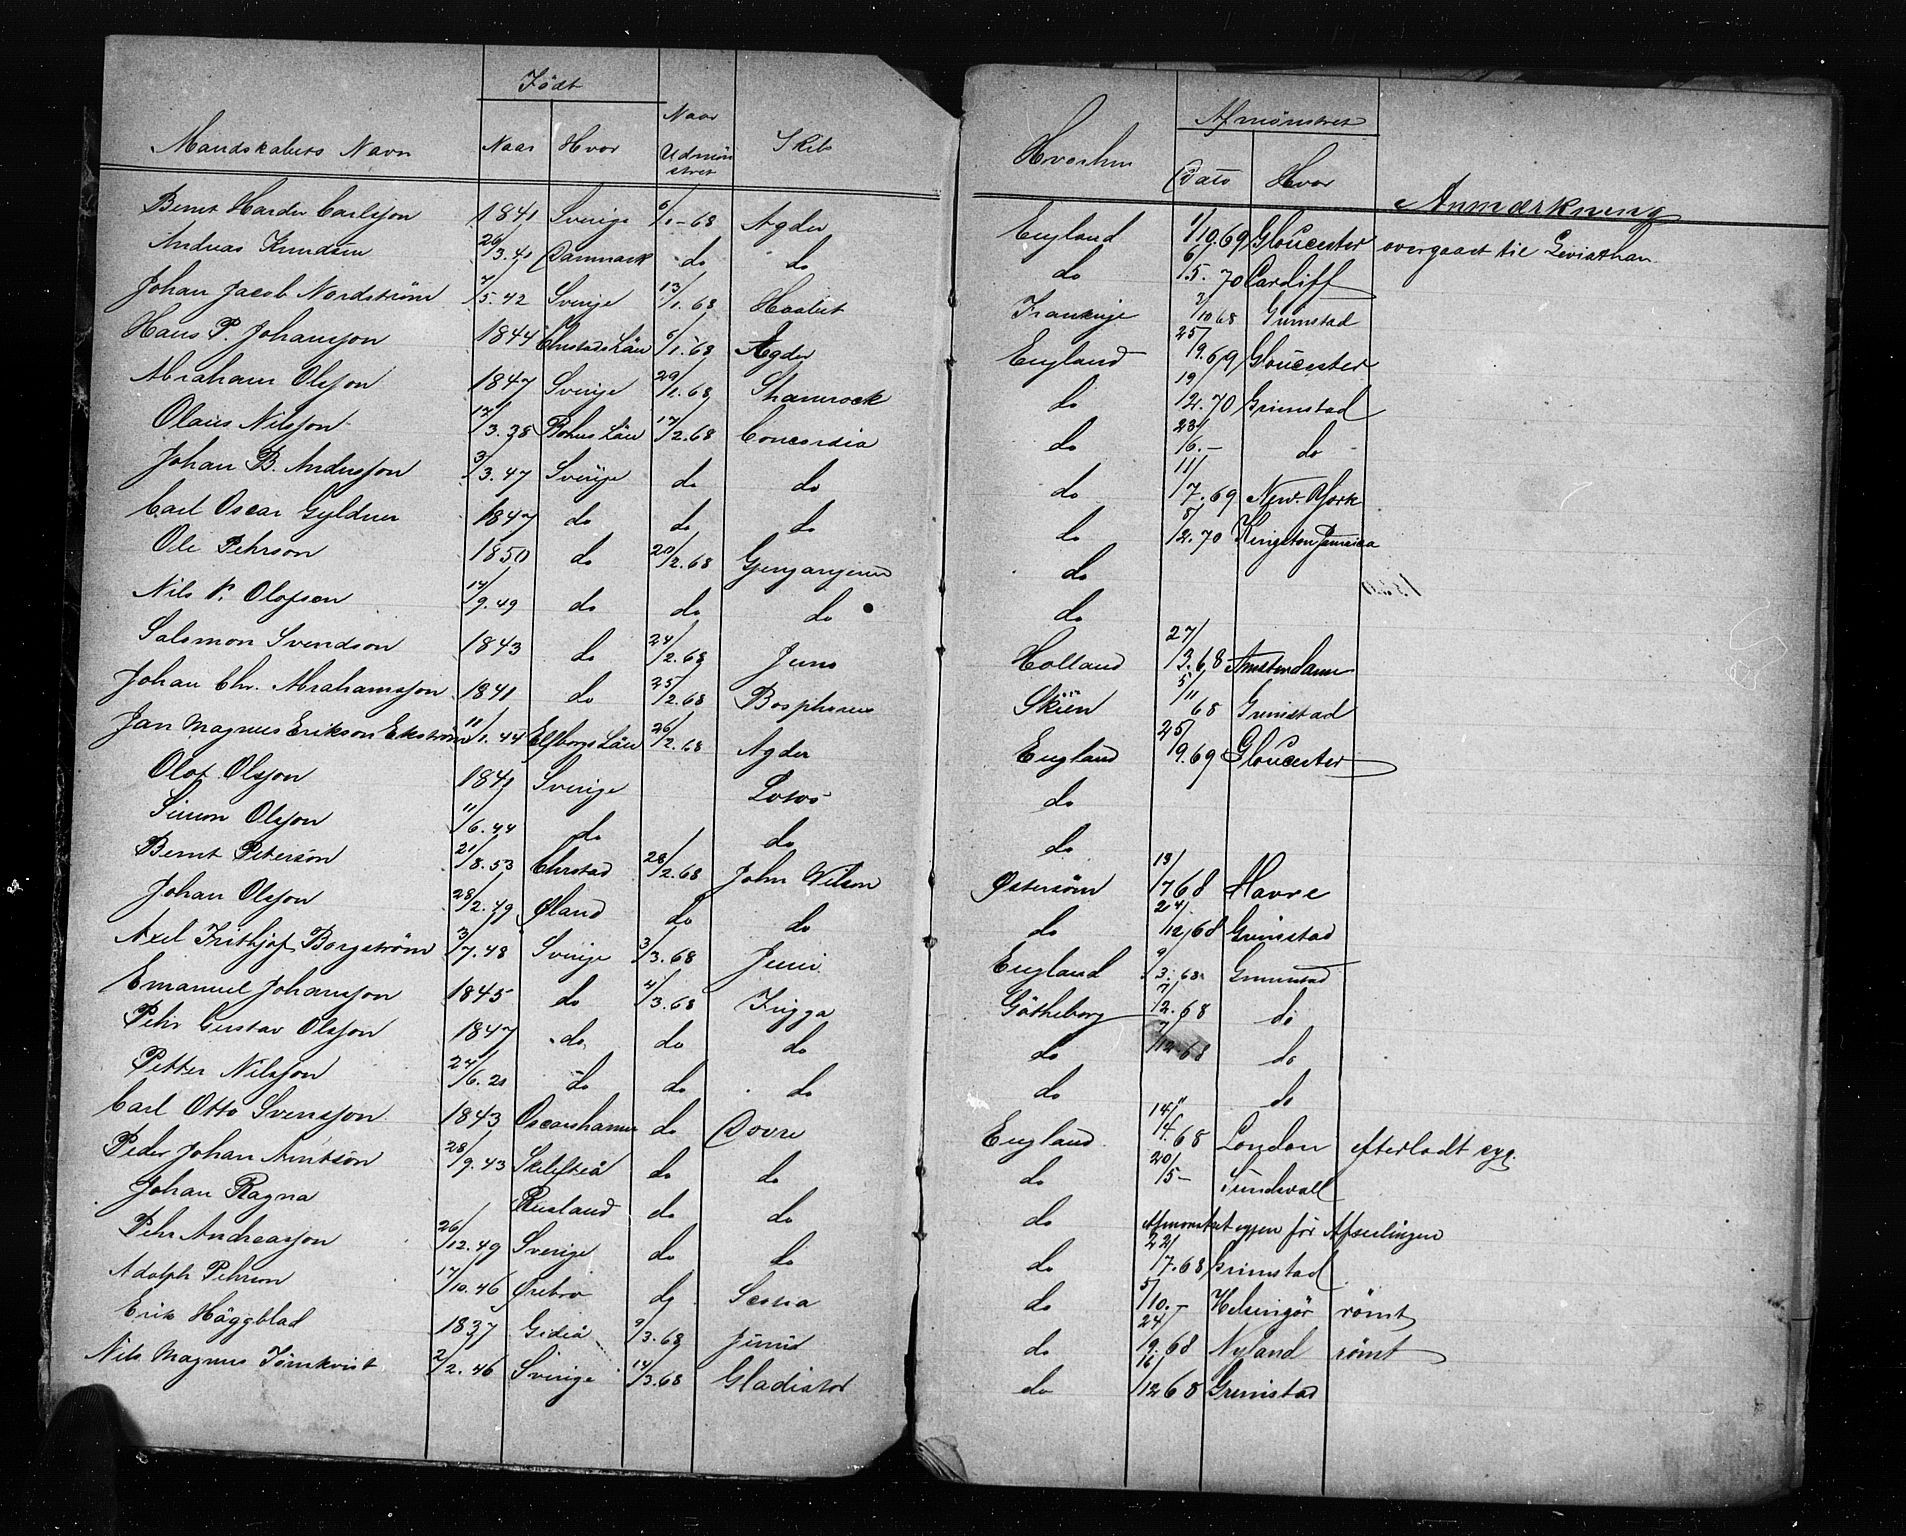 Født
Mandskabets Navn Naar Hvor Naar Udmønstret Skib Hvorhen Afmønstret Dato Hvor Anmærkning
Bernt Harder Carlsson 1841 Sverige 6/1-68 Agder England 1/10.69 Gloucester overgaaet til Leviathan
Andreas Knudsen 26/3.41 Danmark do do do 6/15.70 Cardiff
Johan Jacob Nordstrøm 7/5.42 Sverige 13/1.68 Haabet Frankrige 3/10 68 Grimstad
Hans P. Johansson 1844 Christads Län 6/1.68 Agder England 25/9.69 Gloucester
Abraham Olsson 1847 Sverige 29/1.68 Shamrock do 19/12.70 Grimstad
Olaus Nilsson 12/3.38 Bohus Län 17/2.68 Concordia do 23/6.- do
Johan B. Andersson 3/3.47 Sverige do do do 11/7.69 New-York
Carl Oscar Gyldner 1847 do do do do 5/12.70 Kingston Jamaica
Ole Pehrson 1850 do 20/2.68 Gjengangeren do
Nils P. Olofson 14/9.49 do do do do
Salomon Svendson 1843 do 24/2.68 Juno Holland 27/3.68 Amsterdam
Johan Chr. Abrahamsson 1841 do 25/2.68 Bosphorus Skien 5/11 68 Grimstad
Jan Magnus Erikson Ekstrøm 11/1.44 Elfborgs Län 26/2.68 Agder England 25/9.69 Gloucester
Olof Olsson 1841 Sverige Lotos do
Simon Olsson 11/6.44 do do do
Bernt Peterson 21/8.53 Chrstad 28/2.68 John Wilson Østersøen 13/7 68 Havre
Johan Olsson 28/2.49 Øland do do do 24/12 68 Grimstad
Axel Frithjof Borgstrøm 3/7.48 Sverige 3/3.68 Juni England 9/3.68 Grimstad
Emanuel Johansson 1845 do 4/3.68 Frigga Götheborg 7/12.68 do
Pehr Gustav Olsson 1847 do do do do 7/12.68 do
Petter Nilsson 24/6.21 do do do do " do
Carl Otto Svensson 1843 Oscarshamn do Dovre England 14/4.68 London efterladt syg.
Peder Johan Arntson 28/9.43 Skelefteå do do do 20/5- Sundsvall
Johan Ragna Rusland do do do Afmønstret igjen før Afseilingen
Pehr Andreasson 26/12.49 Sverige do do do 22/7.68 Grimstad
Adolph Pehrson 17/10.46 Ørebro do Scotia do 5/10.- Helsingør rømt
Erik Häggblad 1837 Gideå 9/3.68 Junis do 24/9.68 Nyland rømt
Nils Magnus Tørnkvist 2/2.46 Sverige 14/3.68 Gladiator do 16/12 68 Grimstad